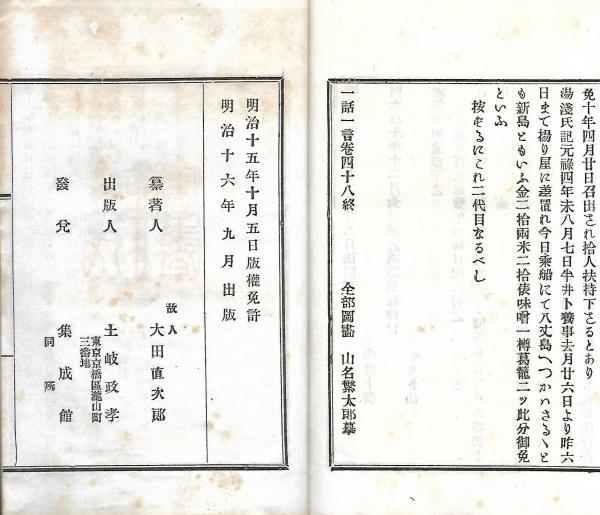 免十年四月廿日召出され拾人扶持下さるとあり
湯淺氏記元祿四年未八月七日半井卜養事去月廿六日より昨六
日まて揚り屋に差置れ今日乘船にて八丈島へつかハさるゝと
も新島ともいふ金二拾兩米二拾俵味噌一樽葛籠二ッ此分御免
といふ
按するにこれ二代目なるべし
一話一言卷四十八終
全部圖畵 山名繁太郎摹
明治十五年十月五日版權免許
明治十六年九月出版
纂著人 故人 大田直次郎
出版人 土岐政孝
東京京橋區瀧山町
三番地
發兌 集成館
同所